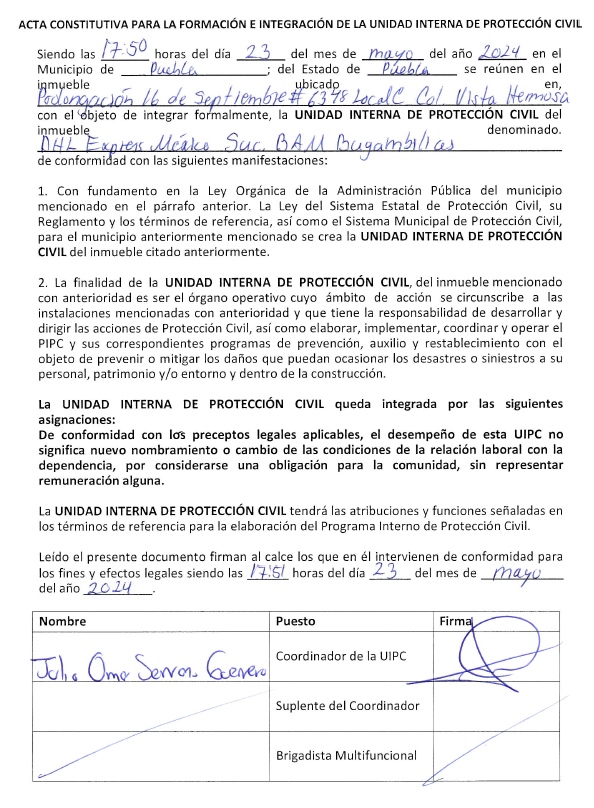 ACTA CONSTITUTIVA PARA LA FORMACIÓN E INTEGRACIÓN DE LA UNIDAD INTERNA DE PROTECCIÓN CIVIL
Siendo las 17:50 horas del día 23 del mes de mayo del año 2024 en el
Municipio de Puebla; del Estado de Puebla se reúnen en el
inmueble ubicado en,
Prolongación 16 de Septiembre # 6348 Local C Col. Vista Hermosa
con el objeto de integrar formalmente, la UNIDAD INTERNA DE PROTECCIÓN CIVIL del
inmueble denominado.
DHL Express México Suc. BAM Bugambilias
de conformidad con las siguientes manifestaciones:
1. Con fundamento en la Ley Orgánica de la Administración Pública del municipio
mencionado en el párrafo anterior. La Ley del Sistema Estatal de Protección Civil, su
Reglamento y los términos de referencia, así como el Sistema Municipal de Protección Civil,
para el municipio anteriormente mencionado se crea la UNIDAD INTERNA DE PROTECCIÓN
CIVIL del inmueble citado anteriormente.
2. La finalidad de la UNIDAD INTERNA DE PROTECCIÓN CIVIL, del inmueble mencionado
con anterioridad es ser el órgano operativo cuyo ámbito de acción se circunscribe a las
instalaciones mencionadas con anterioridad y que tiene la responsabilidad de desarrollar y
dirigir las acciones de Protección Civil, así como elaborar, implementar, coordinar y operar el
PIPC y sus correspondientes programas de prevención, auxilio y restablecimiento con el
objeto de prevenir o mitigar los daños que puedan ocasionar los desastres o siniestros a su
personal, patrimonio y/o entorno y dentro de la construcción.
La UNIDAD INTERNA DE PROTECCIÓN CIVIL queda integrada por las siguientes
asignaciones:
De conformidad con los preceptos legales aplicables, el desempeño de esta UIPC no
significa nuevo nombramiento o cambio de las condiciones de la relación laboral con la
dependencia, por considerarse una obligación para la comunidad, sin representar
remuneración alguna.
La UNIDAD INTERNA DE PROTECCIÓN CIVIL tendrá las atribuciones y funciones señaladas en
los términos de referencia para la elaboración del Programa Interno de Protección Civil.
Leído el presente documento firman al calce los que en él intervienen de conformidad para
los fines y efectos legales siendo las 17:51 horas del día 23 del mes de mayo
del año 2024.
Nombre Puesto Firma
Julio Omar Coordinador de la UIPC
Suplente del Coordinador
Brigadista Multifuncional